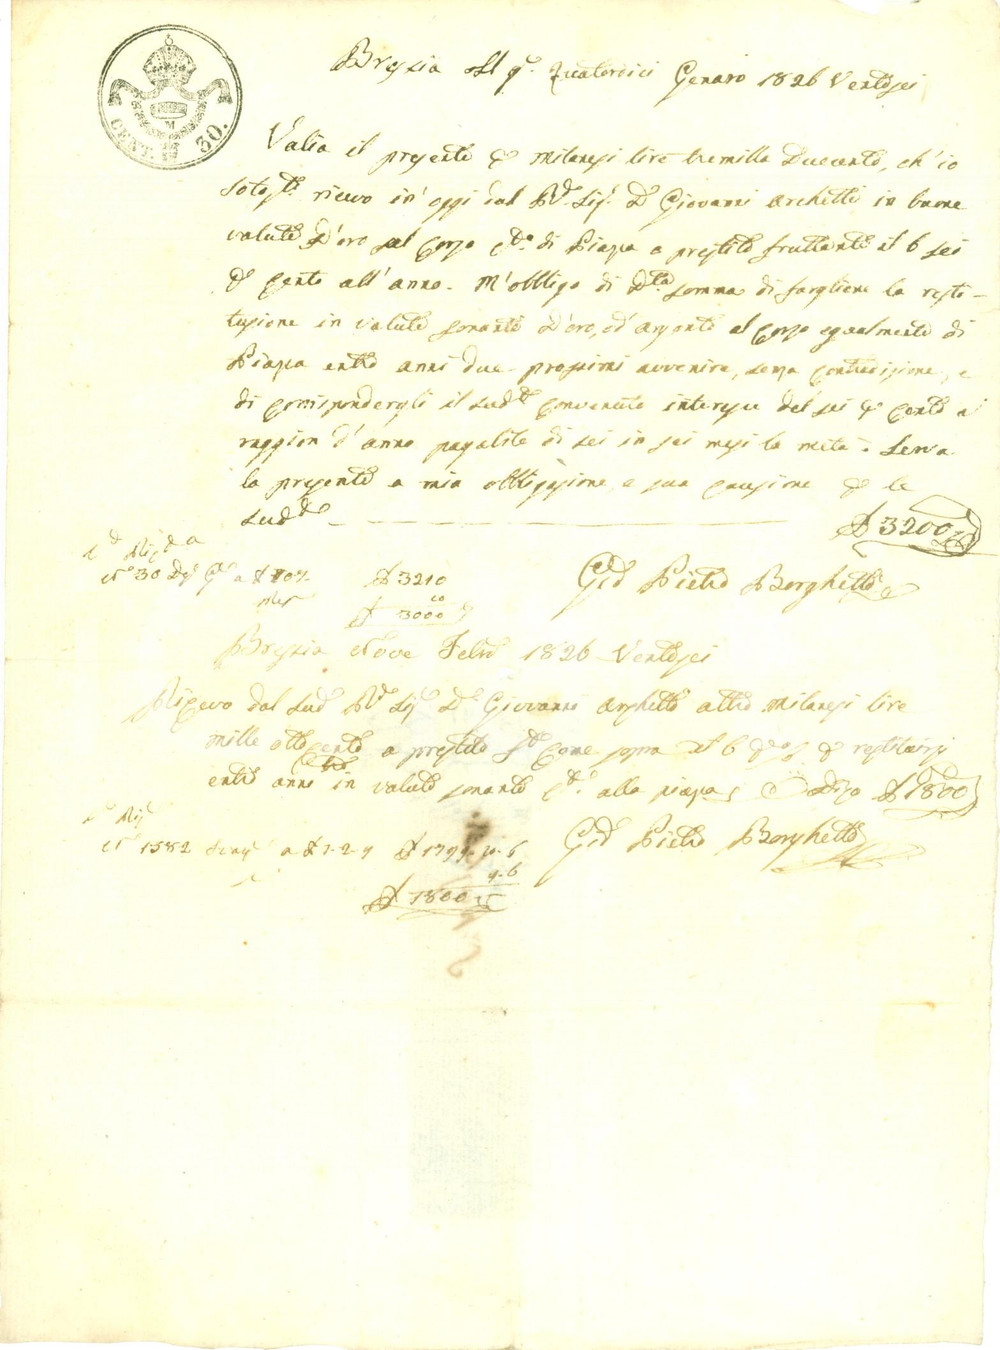 Brescia
quatordici Genaro 1826 Ventisei
CENT. 30.
M
Valia il presente milanesi lire tremilla Duecento, ch'io
ricevo in' oggi dal Rd. Sigr. Dn Giovanni Archetti in buone
valute D'oro al corso di Piazza a prestito fruttante il 6 sei
cento all' anno. M'obbligo di dta somma di fargliene la resti-
tuzione in valute sonanti D'oro, ed' argento al corso egualmente di
Piazza entro anni due prossimi avvenire, senza contradizione, e
di corrispondergli il sudto convenuto interesse del sei cento a
raggion d'anno pagabile di sei in sei mesi la metà. Serva
la presente a mia obbligazione e sua cauzione le
sudde £ 3200
No 30 £ 3210
3000
Pietro Borghetti
Brescia Nove Febro 1826 Ventisei
Ricevo dal sudo Rd Sigr Dn Giovanni Archetti altre milanesi lire
mille ottocento a prestito come sopra al 6 restituirsi
entro anno in valute sonanti alla piazza Dico £ 1800
No 1582 a £ 1799
9.6
£ 1800
Pietro Borghetti